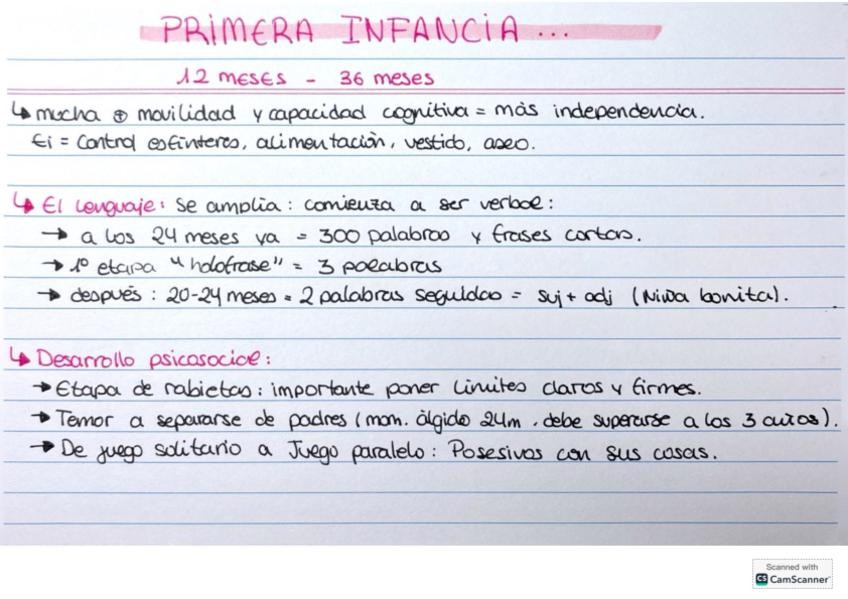 PRIMERA INFANCIA ...
12 meses - 36 meses
↳ mucha ⊕ movilidad y capacidad cognitiva = más independencia.
Ej = Control esfínteres, alimentación, vestido, aseo.
↳ El lenguaje: Se amplia: comienza a ser verbal:
→ a los 24 meses ya = 300 palabras y frases cortas.
→ 1º etapa "holofrase" = 3 palabras
→ después: 20-24 meses = 2 palabras seguidas = suj + adj (Niña bonita).
↳ Desarrollo psicosocial:
→ Etapa de rabietas: importante poner límites claros y firmes.
→ Temor a separarse de padres (mom. álgido 24m. debe superarse a los 3 años).
→ De juego solitario a Juego paralelo: Posesivos con sus cosas.
Scanned with
CS CamScanner